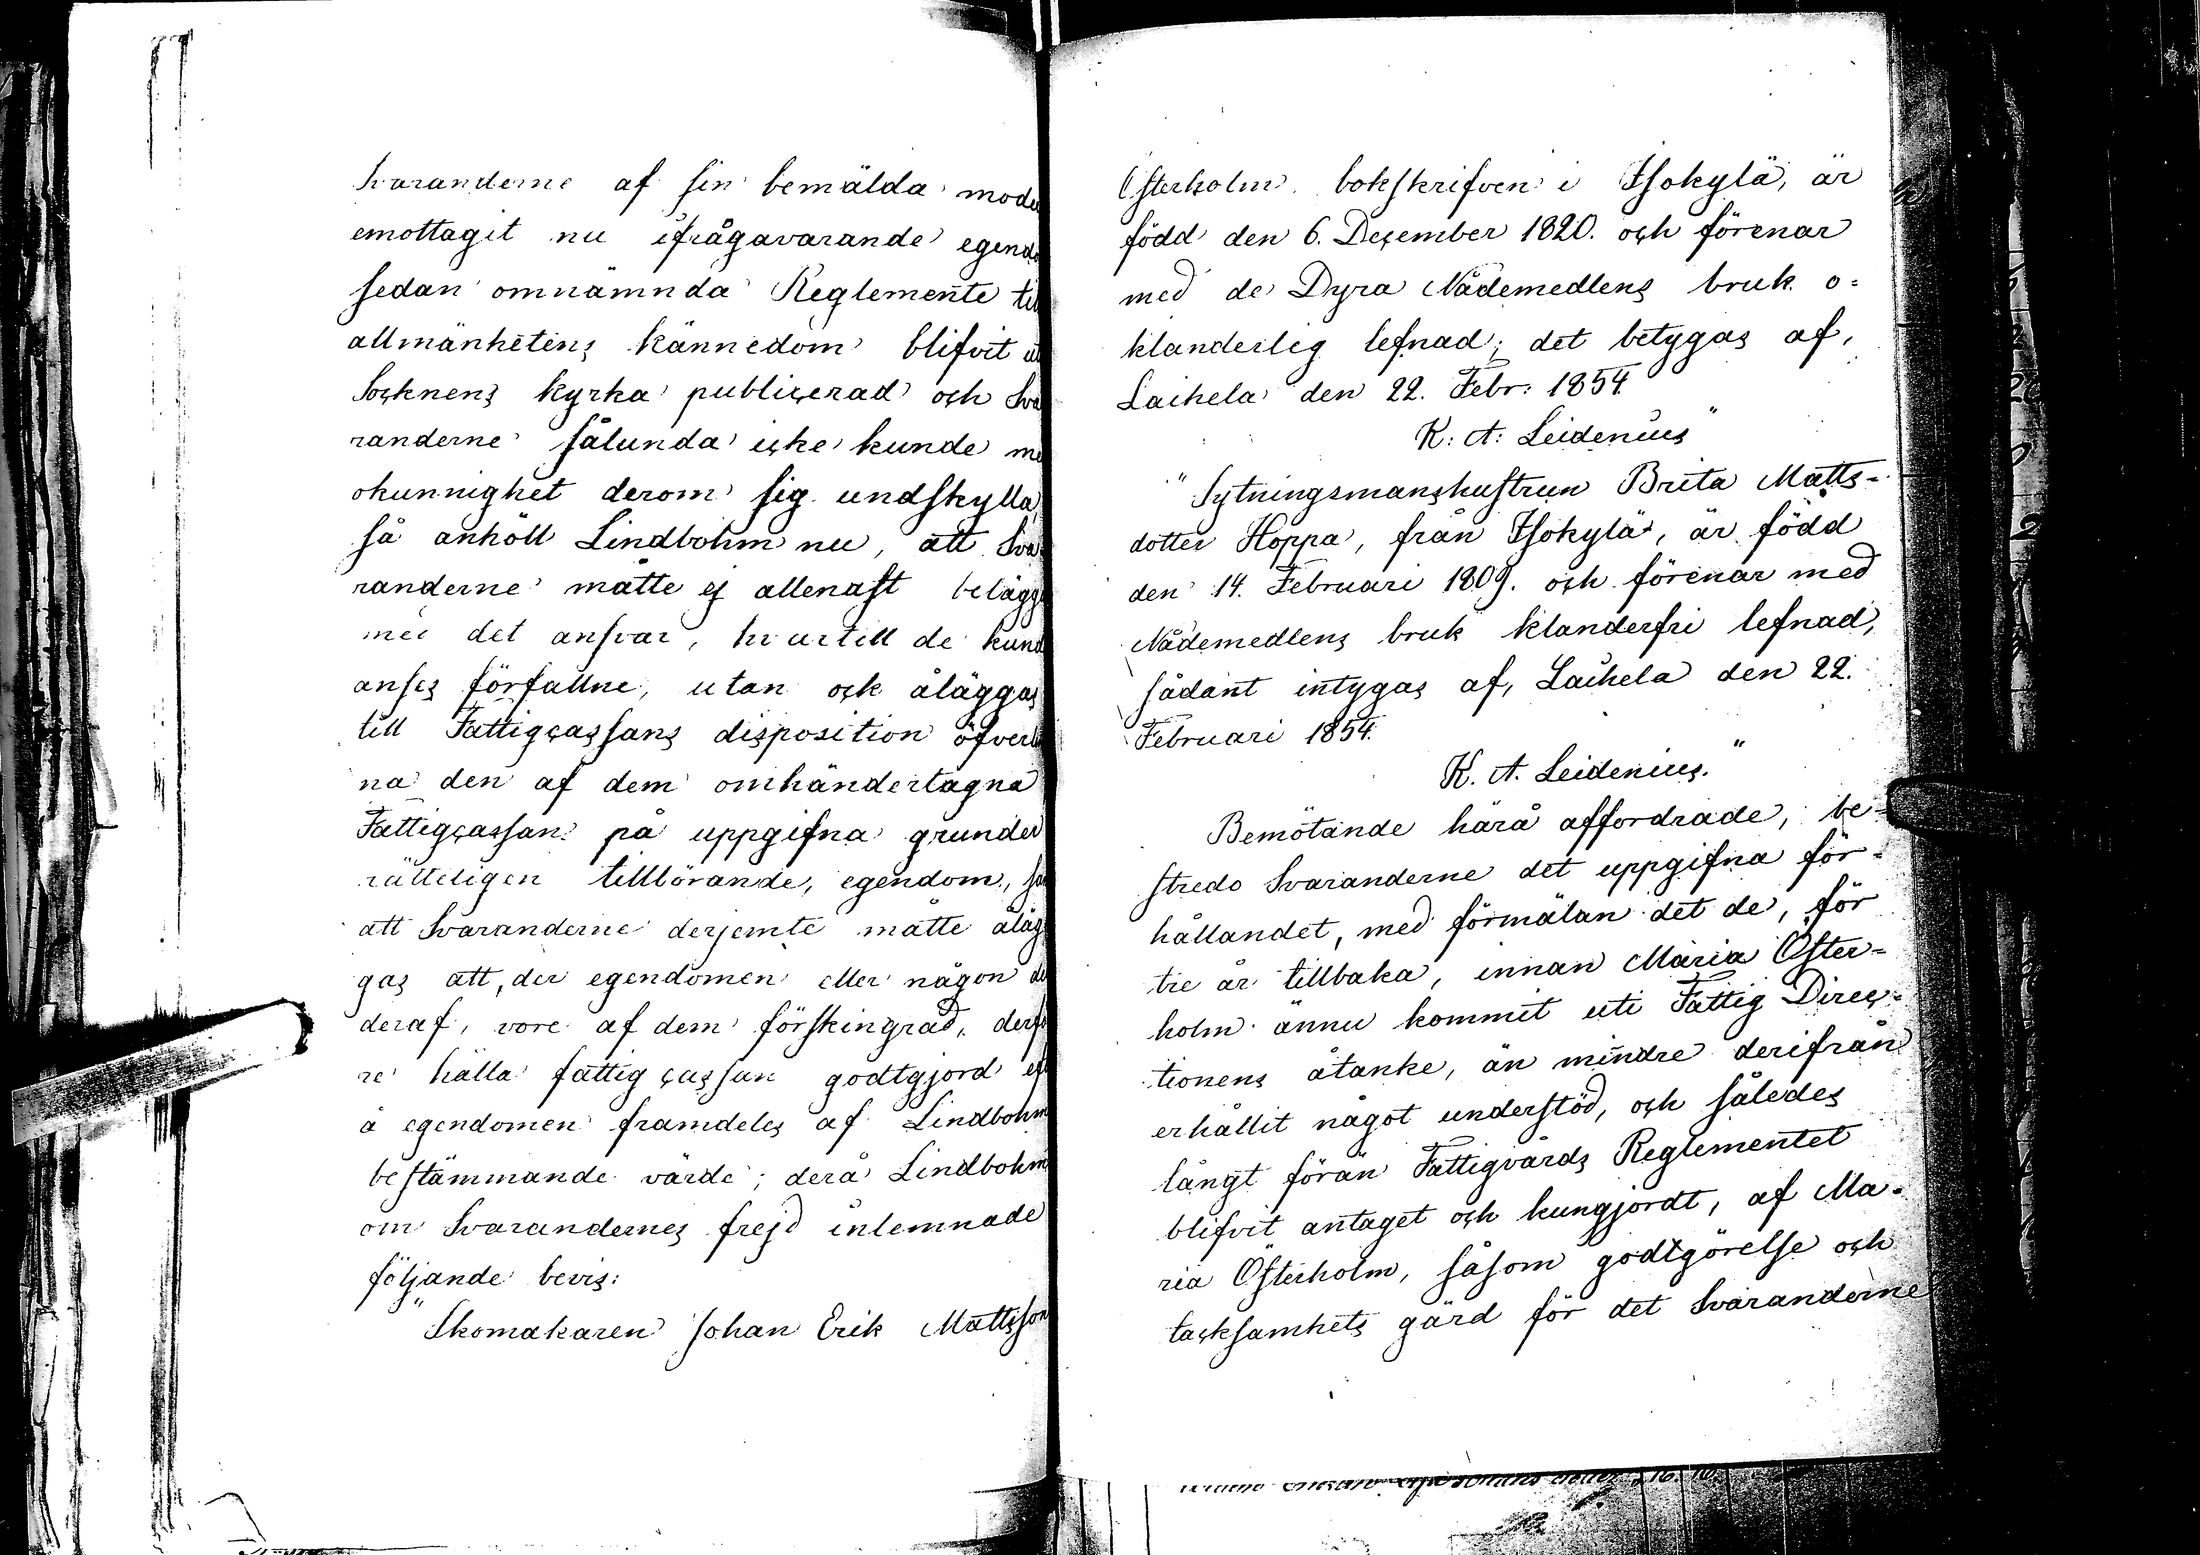 Svaranderne af sin bemälda mode
emottagit nu ifrågavarande egend
sedan omnämnda Reglemente til
allmänhetens kännedom blifvit ut
Socknens kyrka publicerad och Sva
randerne sålunda icke kunde me
okunnighet derom sig undskylla,
så anhöll Lindbohm nu, att Sva
randerne måtte ej allenast belägga
med det ansvar, hvartill de kund
anses förfallne, utan ock åläggas
till Fattigcassans disposition öfverl
na den af dem omhändertagna
Fattigcassan på uppgifna grunder
rätteligen tillhörande, egendom, sa
att Svaranderne derjemte måtte åläg
gas att, der egendomen eller någon de
deraf, vore af dem förskingrad, derfö
re hålla fattig cassan godtgjord eft
å egendomen framdeles af Lindbohm
bestämmande värde; derå Lindbohm
om Svarandernes frejd inlemnade
följande bevis:
"Skomakaren Johan Erik Mattsson
Österholm bokskrifven i Isokylä, är
född den 6. December 1820. och förenar
med de Dyra Nådemedlens bruk o=
klanderlig lefnad; det betygas af,
Laihela den 22. Febr: 1854.
K: A: Leidenius"
"Sytningsmanshustrun Brita Matts=
dotter Hoppa, från Isokylä, är född
den 14. Februari 1809. och förenar med
Nådemedlens bruk klanderfri lefnad,
sådant intygas af, Laihela den 22.
Februari 1854.
K. A. Leidenius."
Bemötande härå affordrade, be=
stredo Svaranderne det uppgifna för=
hållandet, med förmälan det de, för
tre år tillbaka, innan Maria Öster=
holm ännu kommit uti Fattig Direc=
tionens åtanke, än mindre derifrån
erhållit något understöd, och således
långt förän Fattigvårds Reglementet
blifvit antaget och kungjordt, af Ma=
ria Österholm, såsom godtgörelse och
tacksamhets gärd för det Svaranderne